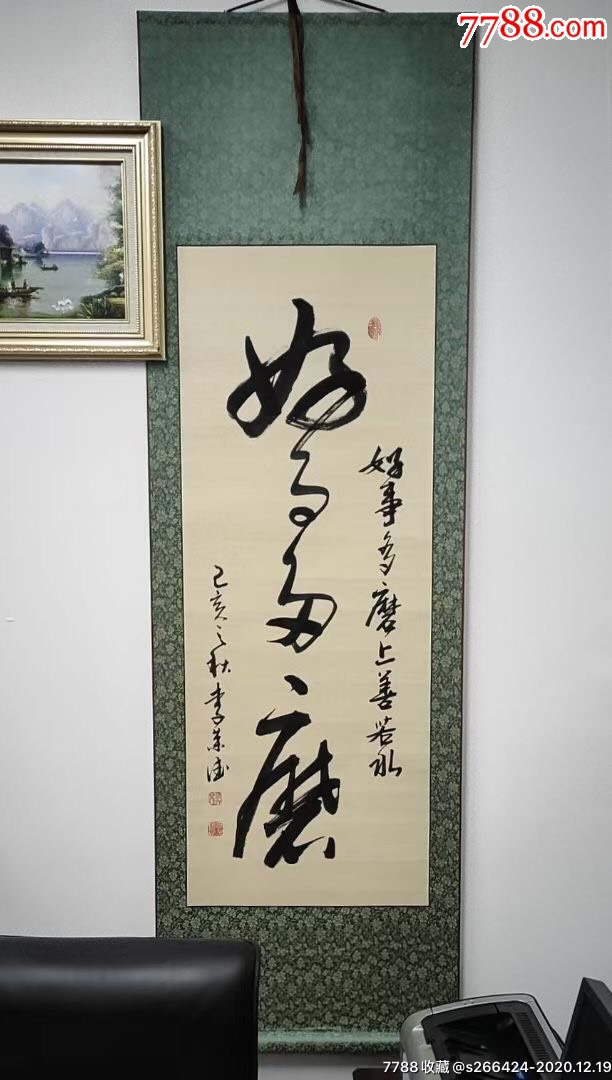 7788.com
好事多磨
好事多磨上善若水
己亥之秋李
7788收藏@s266424-2020.12.19